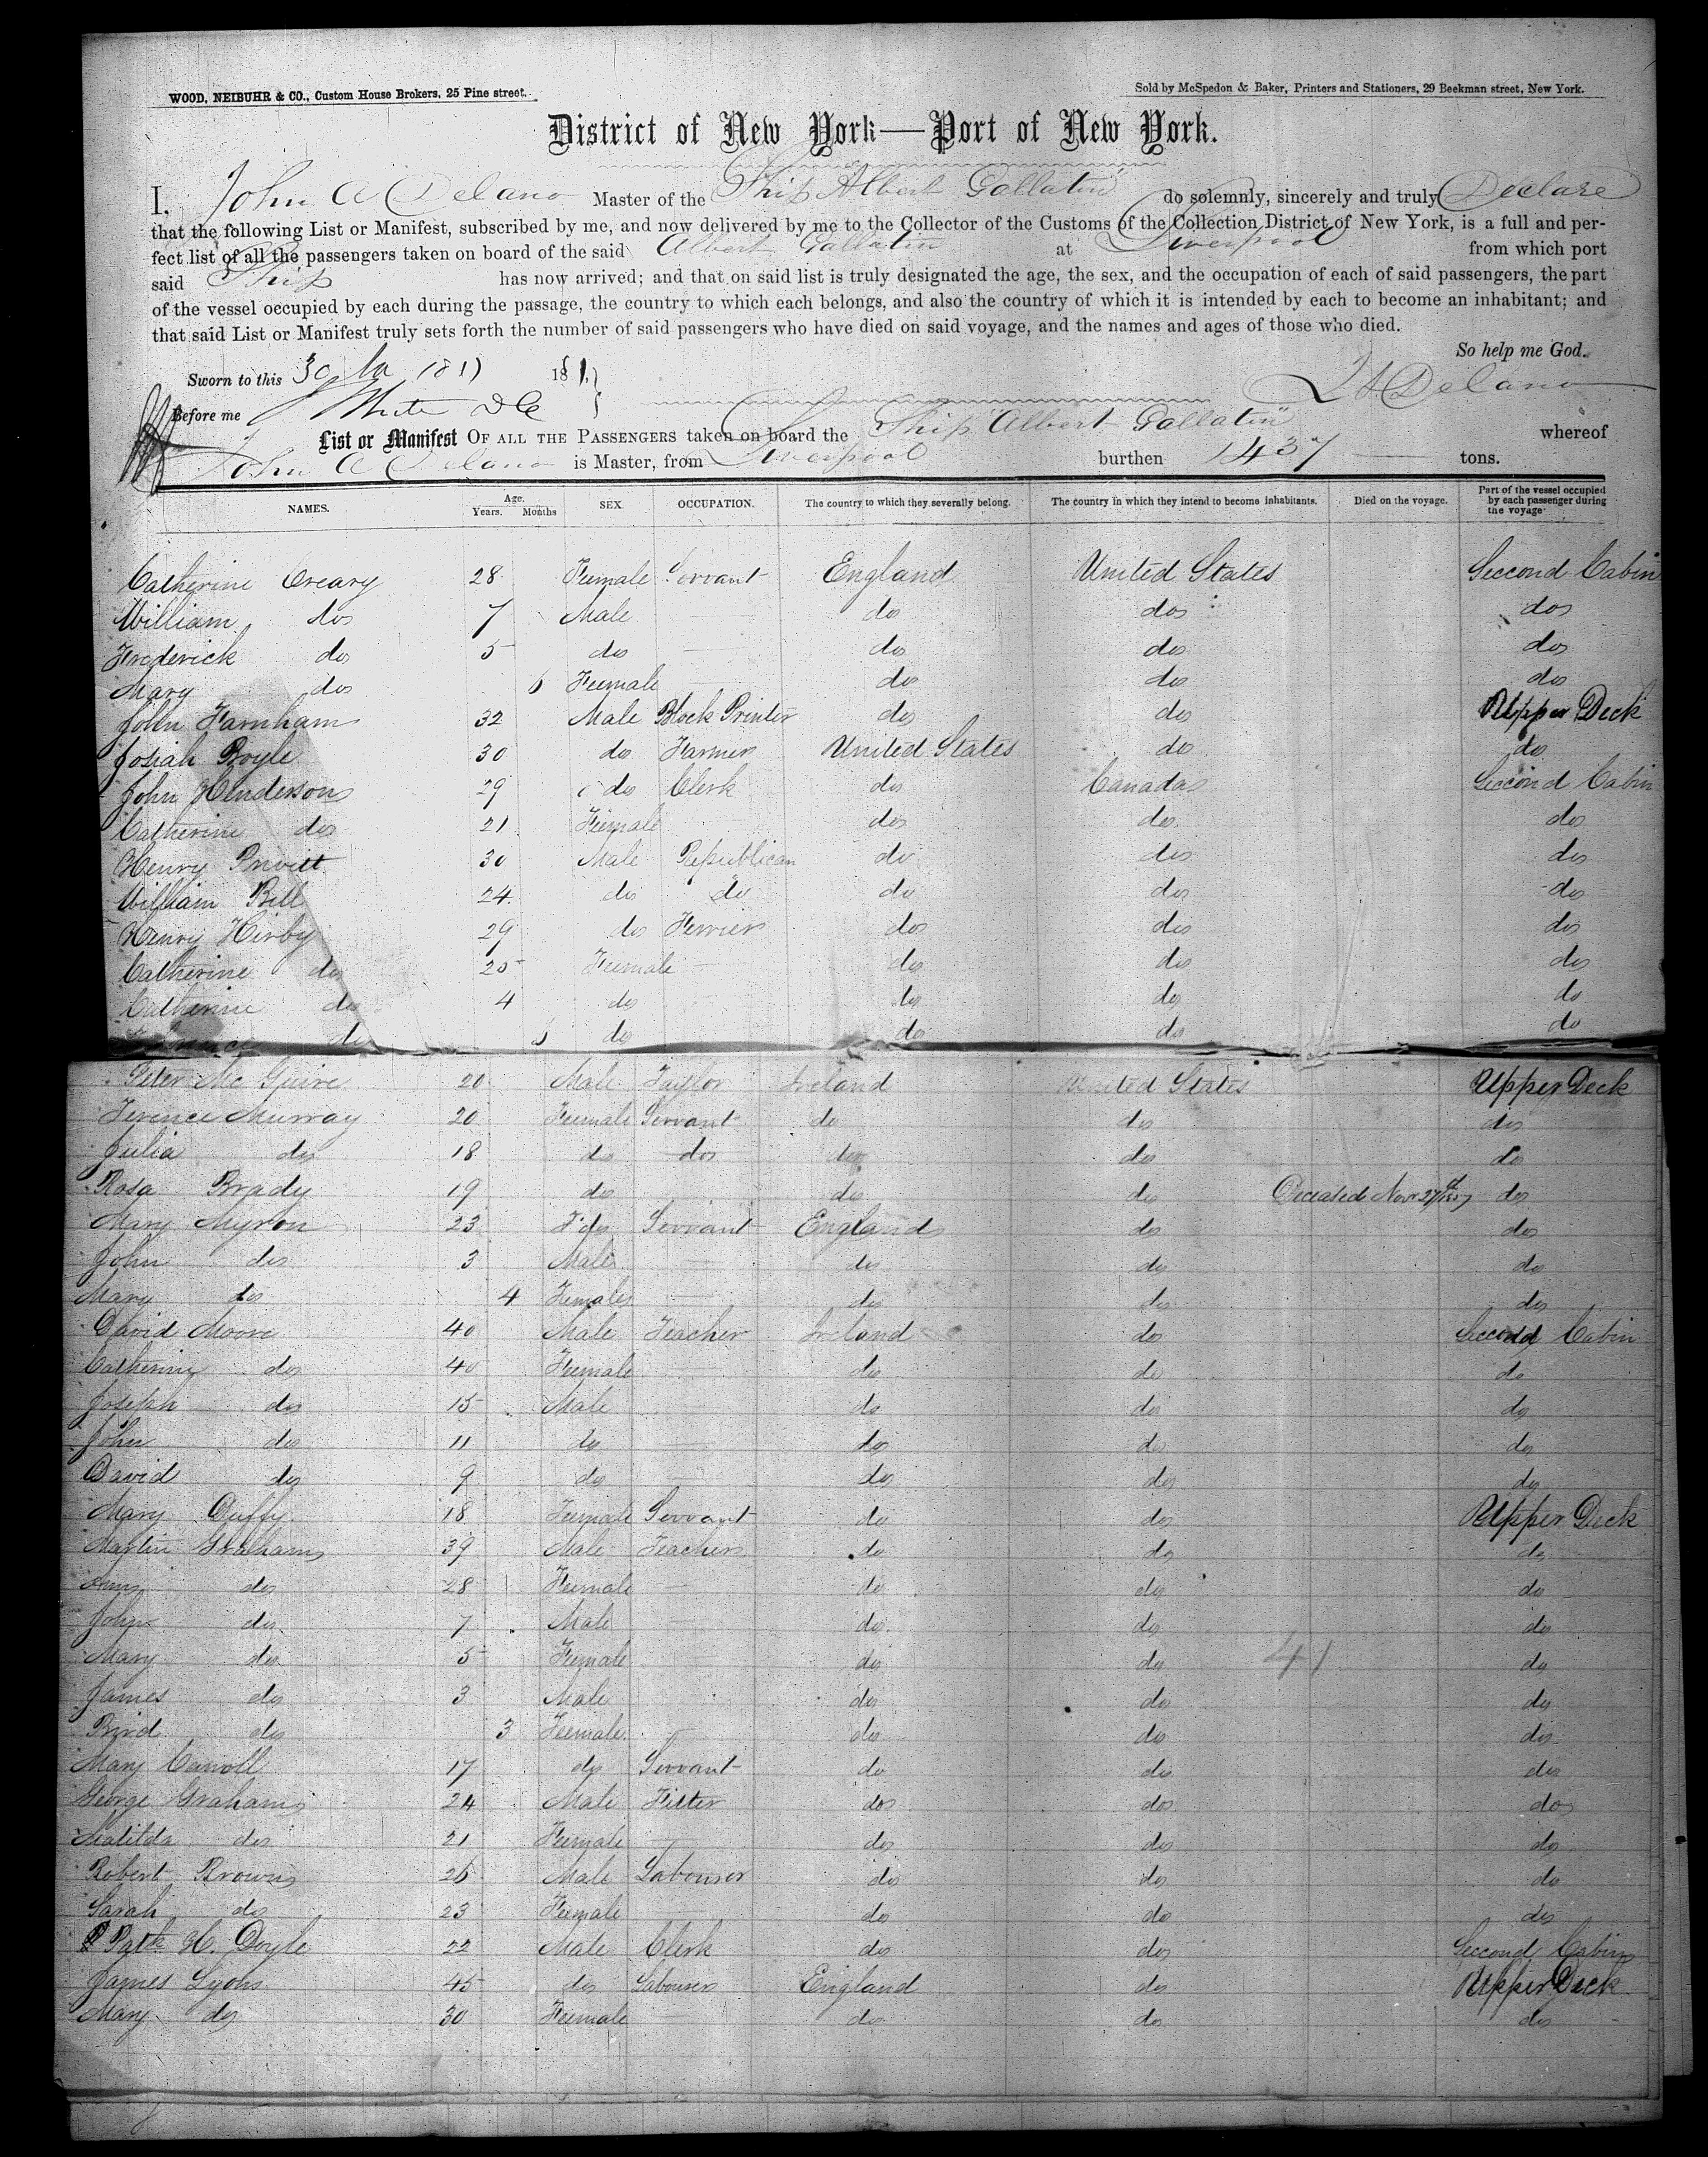 WOOD, NEIBUHR & CO., Custom House Brokers, 25 Pine street. Sold by McSpedon & Baker, Printers and Stationers, 29 Beekman street, New York.
District of New York—Port of New York.
I, John A Delano Master of the Ship Albert Gallatin do solemnly, sincerely and truly Declare
that the following List or Manifest, subscribed by me, and now delivered by me to the Collector of the Customs of the Collection District of New York, is a full and per-
fect list of all the passengers taken on board of the said Albert Gallatin at Liverpool from which port
said Ship has now arrived; and that on said list is truly designated the age, the sex, and the occupation of each of said passengers, the part
of the vessel occupied by each during the passage, the country to which each belongs, and also the country of which it is intended by each to become an inhabitant; and
that said List or Manifest truly sets forth the number of said passengers who have died on said voyage, and the names and ages of those who died.
So help me God.
Sworn to this 30 18
Before me J A Delano
List or Manifest OF ALL THE PASSENGERS taken on board the Ship "Albert Gallatin" whereof
John A Delano is Master, from Liverpool burthen 1437 tons.
NAMES. Age. Years. Months SEX OCCUPATION. The country to which they severally belong. The country in which they intend to become inhabitants. Died on the voyage. Part of the vessel occupied by each passenger during the voyage
Catherine Creary 28 Female Servant England United States Second Cabin
William do 7 Male — do do do
Frederick do 5 do — do do do
Mary do 6 Female do do do
John Farnham 32 Male Block Printer do do Upper Deck
Josiah Boyle 30 do Farmer United States do do
John Henderson 29 do Clerk do Canada Second Cabin
Catherine do 21 Female do do do
Henry Privitt 30 Male Republican do do do
William Bill 24 do do do do do
Henry Hirby 29 do Ferrier do do do
Catherine do 25 Female — do do do
Catherine do 4 do do do do
do 6 do do do do
Peter McGuire 20 Male Taylor Ireland United States Upper Deck
Terence Murray 20 Female Servant do do do
Julia do 18 do do do do do
Rosa Brady 19 do do do Deceased Novr 27th 1857 do
Mary Myron 23 F do Servant England do do
John do 3 Male — do do do
Mary do 4 Female — do do do
David Moore 40 Male Teacher Ireland do Second Cabin
Catherine do 40 Female do do do
Joseph do 15 Male do do do
John do 11 do — do do do
David do 9 do — do do do
Mary Duffy 18 Female Servant do do Upper Deck
Martin Graham 39 Male Teacher do do do
Ann do 28 Female — do do do
John do 7 Male — do do do
Mary do 5 Female do do do
41
James do 3 Male do do do
Bird do 3 Female — do do do
Mary Carroll 17 do Servant do do do
George Graham 24 Male Fitter do do do
Matilda do 21 Female — do do do
Robert Brown 26 Male Labourer do do do
Sarah do 23 Female — do do do
Patk H. Doyle 22 Male Clerk do do Second Cabin
James Lyons 45 do Labourer England do Upper Deck
Mary do 30 Female — do do do